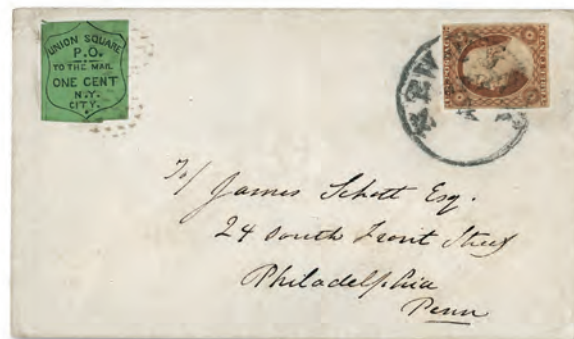 UNION SQUARE
P.O.
TO THE MAIL
ONE CENT
N.Y.
CITY.
To/
James Schott Esq.
24 South Front Street
Philadelphia
Penn